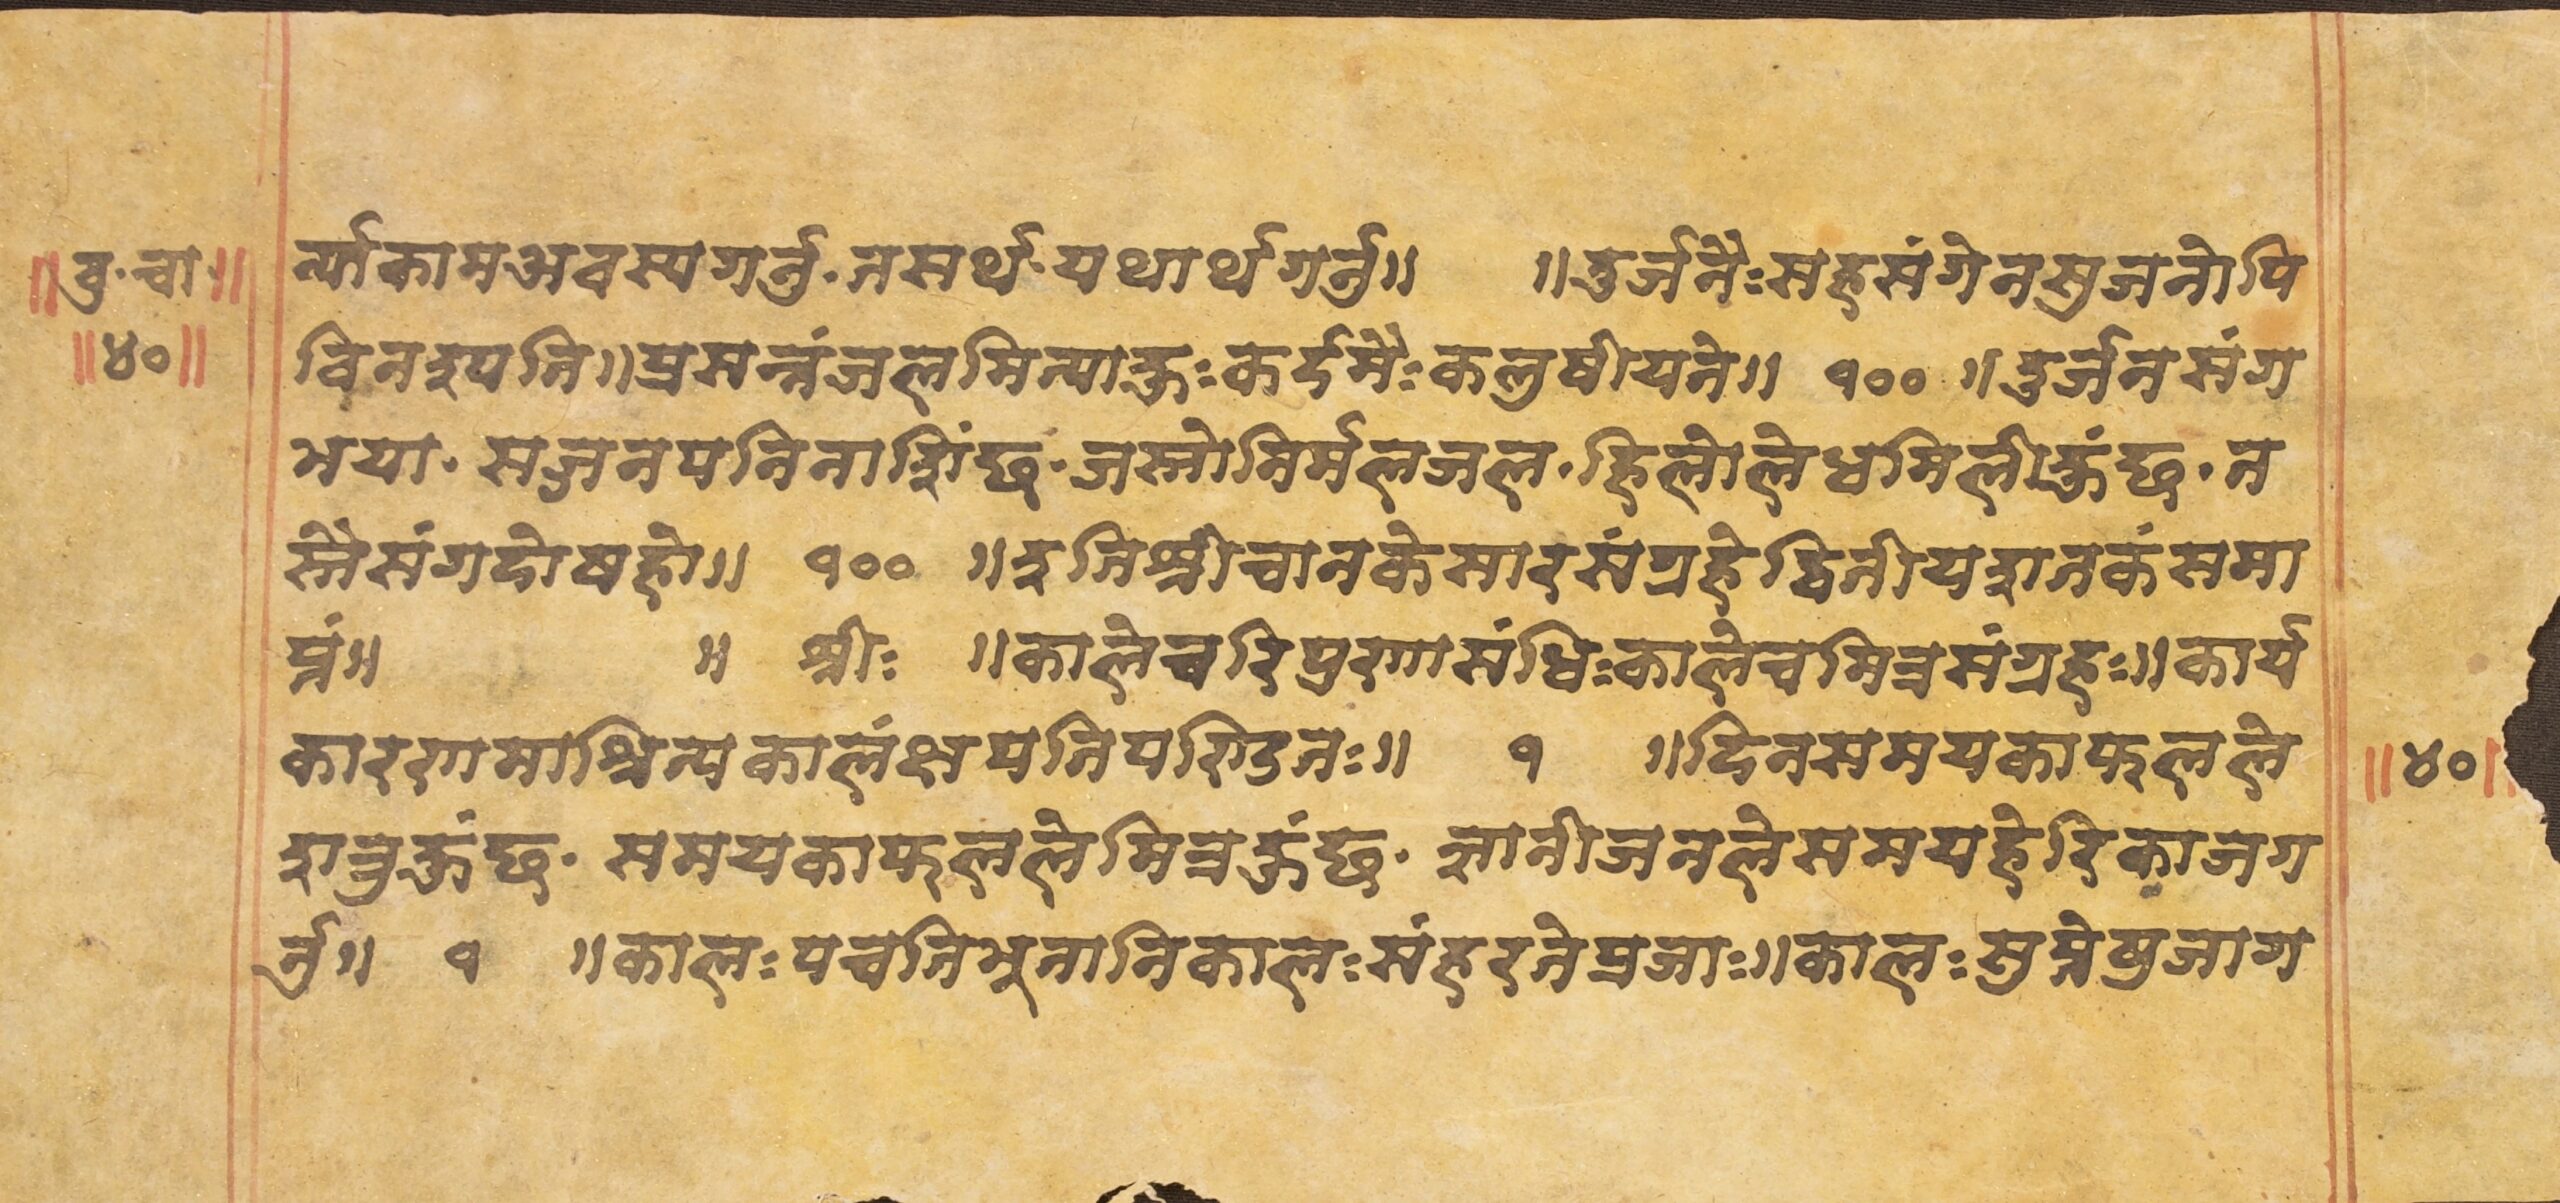 ॥वु·चा·॥
॥४०॥
र्न्याकामअवस्यगर्नु·तसर्थ·यथार्थगर्नु॥ ॥दुर्जनैःसहसंगेनसुजनोपि
विनश्यति॥प्रसन्नंजलमित्याहुःकर्दमैःकलुषीयते॥ १०० ॥दुर्जनसंग
भया·सज्जनपनिनाशिंछ·जस्तोनिर्मलजल·हिलोलेधमिलीहुंछ·त
स्तैसंगदोषहो॥ १०० ॥इतिश्रीचानकेसारसंग्रहेद्वितीयशतकंसमा
प्तं॥ ॥ श्रीः ॥कालेचरिपुरणासंधिःकालेचमित्रसंग्रहः॥कार्य
कारणमाश्रित्यकालंक्षपतिपण्डितः॥ १ ॥दिनसमयकाफलले
शत्रुहुंछ·समयकाफललेमित्रहुंछ·ज्ञानीजनलेसमयहेरिकाजग
र्नु॥ १ ॥कालःपचतिभूतानिकालःसंहरतेप्रजाः॥कालःसुप्तेषुजाग
॥४०॥